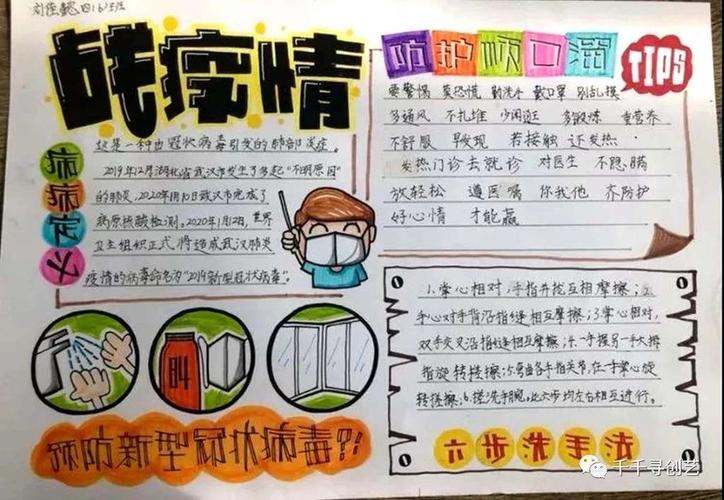 刘佳懿 四(6)班
战疫情
防护顺口溜
TIPS
要警惕 莫恐慌 勤洗手 戴口罩 别乱摸
多通风 不扎堆 少闲逛 多锻炼 重营养
不舒服 早发现 若接触 还发热
发热门诊去就诊 对医生 不隐瞒
放轻松 遵医嘱 你我他 齐防护
好心情 才能赢
疾病定义
这是一种由冠状病毒引发的肺部炎症。
2019年12月湖北省武汉市发生了多起"不明原因"
的肺炎,2020年1月10日武汉市完成了
病原核酸检测。2020年1月12日,世界
卫生组织正式将造成武汉肺炎
疫情的病毒命名为"2019新型冠状病毒"。
叫
预防新型冠状病毒?!
1.掌心相对,手指并拢互相摩擦;2.
手心对手背沿指缝相互摩擦;3.掌心相对,
双手交叉沿指缝相互摩擦;4.一手握另一手大拇
指旋转搓擦;5.弯曲各手指关节,在一手掌心旋
转搓擦;6.搓洗手腕。此六步均左右相互进行。
六步洗手法
千千寻创艺